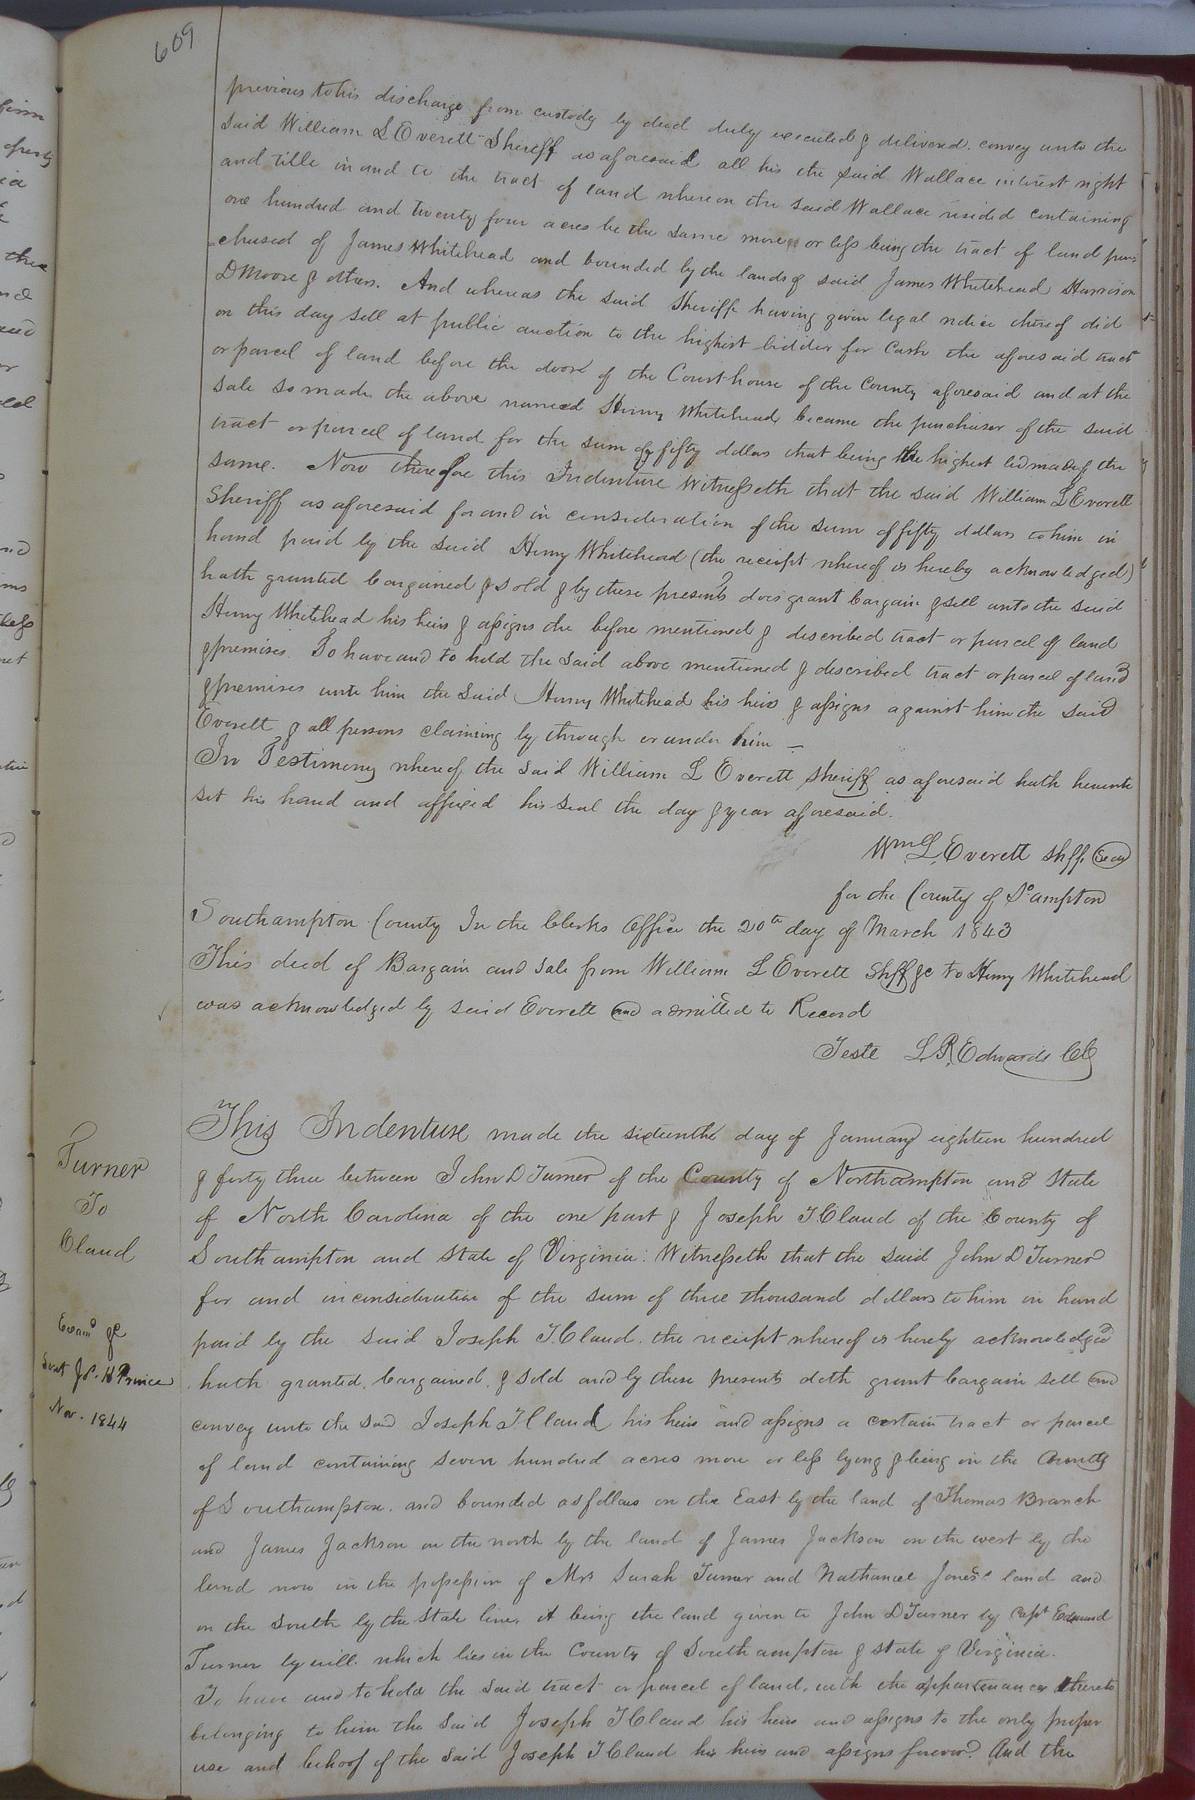 609
previous to his discharge from custody by deed duly executed & delivered convey unto the
said William L Everett Sheriff as aforesaid all his the said Wallace interest right
and title in and to the tract of land whereon the said Wallace resided containing
one hundred and twenty four acres be the same more or less being the tract of land pur=
=chased of James Whitehead and bounded by the lands of said James Whitehead Harrison
D Moore & others. And whereas the said Sheriff having given legal notice thereof did
on this day sell at public auction to the highest bidder for Cash the aforesaid tract
or parcel of land before the door of the Court house of the County aforesaid and at the
sale so made the above named Henry Whitehead became the purchaser of the said
tract or parcel of land for the sum of fifty dollars that being the highest bid made of the
same. Now therefore this Indenture Witnesseth that the said William L Everett
Sheriff as aforesaid for and in consideration of the sum of fifty dollars to him in
hand paid by the said Henry Whitehead (the receipt whereof is hereby acknowledged)
hath granted bargained & sold & by these presents does grant bargain & sell unto the said
Henry Whitehead his heirs & assigns the before mentioned & described tract or parcel of land
& premises. To have and to hold the said above mentioned & described tract or parcel of land
& premises unto him the said Henry Whitehead his heirs & assigns against him the said
Everett & all persons claiming by through or under him —
In Testimony whereof the said William L Everett Sheriff as aforesaid hath hereunto
set his hand and affixed his seal the day & year aforesaid.
Wm L. Everett Shff. Seal
for the County of So ampton
Southampton County In the Clerks Office the 20th day of March 1843
This deed of Bargain and Sale from William L Everett Shff &c to Henry Whitehead
was acknowledged by said Everett and admitted to Record
Teste L. R. Edwards CC
Turner
To
Claud
Examd &
Sent J
Prince
Nov. 1844
This Indenture made the sixteenth day of January eighteen hundred
& forty three between John D Turner of the County of Northampton and State
of North Carolina of the one part & Joseph T Claud of the County of
Southampton and State of Virginia: Witnesseth that the said John D Turner
for and in consideration of the sum of three thousand dollars to him in hand
paid by the said Joseph T. Claud. the receipt whereof is hereby acknowledged
hath granted. bargained. & sold and by these presents doth grant bargain sell and
convey unto the said Joseph T Claud his heirs and assigns a certain tract or parcel
of land containing seven hundred acres more or less lying & being in the County
of Southampton. and bounded as follows on the East by the land of Thomas Branch
and James Jackson on the north by the land of James Jackson on the west by the
land now in the possession of Mrs Sarah Turner and Nathaniel Jones' land and
on the South by the State line, it being the land given to John D Turner by Capt Edmund
Turner by will. which lies in the County of Southampton & State of Virginia.
To have and to hold the said tract or parcel of land, with the appurtenances thereto
belonging to him the said Joseph T Claud his heirs and assigns to the only proper
use and behoof of the said Joseph T Claud his heirs and assigns forever. And the